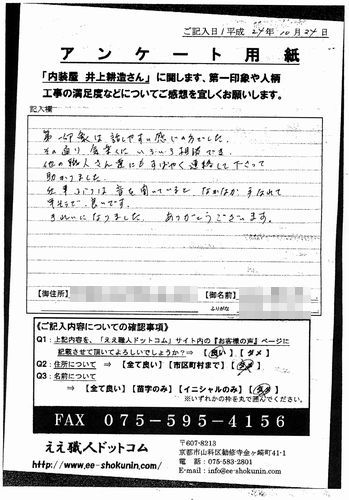 ご記入日/平成 24年 10月 24日
アンケート用紙
「内装屋 井上耕造さん」に関します、第一印象や人柄
工事の満足度などについてご感想を宜しくお願いします。
記入欄
第一印象は話しやすい感じの方でした。
その通り 気楽に いろいろ相談でき、
他の職人さん達にもすばやく連絡して下さって
助かりました。
仕事ぶりは音を聞いていると、なかなか手なれて
きれいになりました。 ありがとうございます。
【御住所】
【御名前】
ふりがな
《ご記入内容についての確認事項》
Q1：上記内容を、「ええ職人ドットコム」サイト内の『お客様の声』ページに
記載させて頂いてよろしいでしょうか？⇒ 【良い】 【ダメ】
Q2：住所について ⇒ 【全て良い】【市区町村まで】【ダメ】
Q3：名前について
⇒ 【全て良い】【苗字のみ】【イニシャルのみ】【ダメ】
※いずれかの枠を丸で囲んでください。
FAX 075-595-4156
ええ職人ドットコム
http://www.ee-shokunin.com/
〒607-8213
京都市山科区勧修寺金ヶ崎町41-1
電話：075-583-2801
E-mail：info@ee-shokunin.com